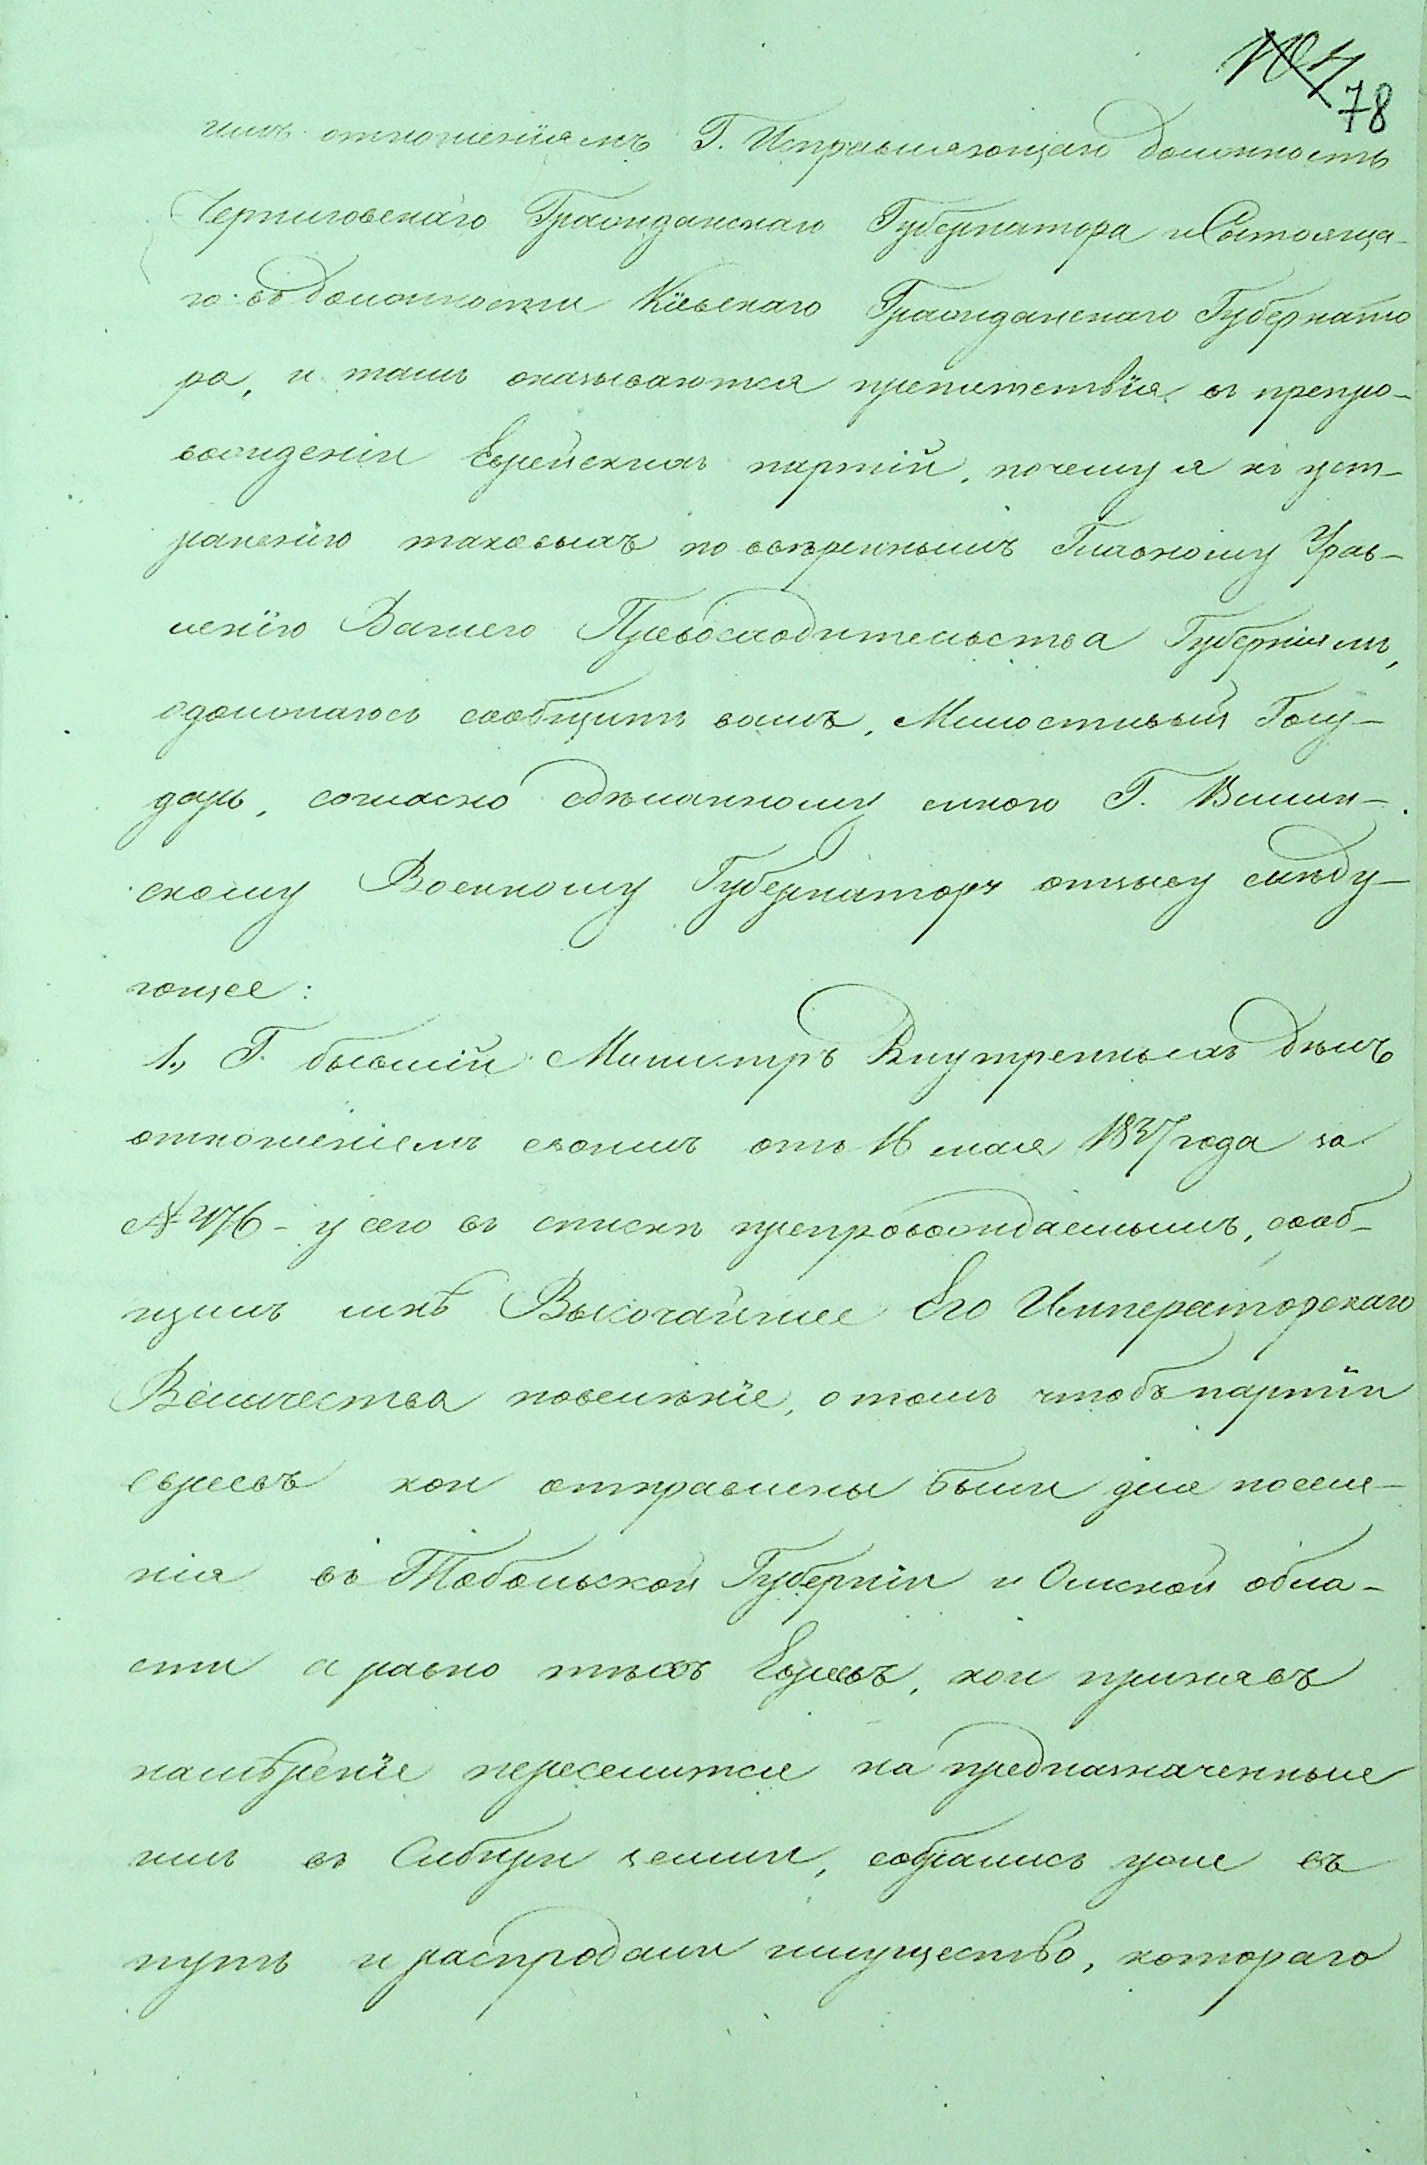 104
78
гимъ отношеніямъ Г. Исправляющаго должность
Черниговскаго Гражданскаго Губернатора и Состояща-
го въ должности Кіевскаго Гражданскаго Губернато
ра, и тамъ оказываются препятствія въ препро-
вожденіи Еврейскихъ партій, почему я къ уст-
раненію таковыхъ по ввѣреннымъ Главному Упра-
ленію Вашего Превосходительства Губерніямъ,
одолжаюсь сообщить вамъ, Милостивый Госу-
дарь, согласно сдѣланному мною Г. Вилен-
скому Военному Губернатору отзыву слѣду-
ющее:
1., Г. бывшій Министръ Внутреннихъ дѣлъ
отношеніемъ своимъ отъ 16 мая 1837 года за
№ 476 - у сего въ спискѣ препровождаемымъ, сооб-
щилъ мнѣ Высочайшее Его Императорскаго
Величества повелѣніе, о томъ чтобъ партіи
евреевъ кои отправлены были для поселе-
нія въ Тобольской Губерніи и Омской обла-
сти а равно тѣхъ Евреевъ, кои принявъ
намѣреніе переселится на предназначенные
имъ въ Сибири земли, собрались уже въ
путь и распродали имущество, котораго